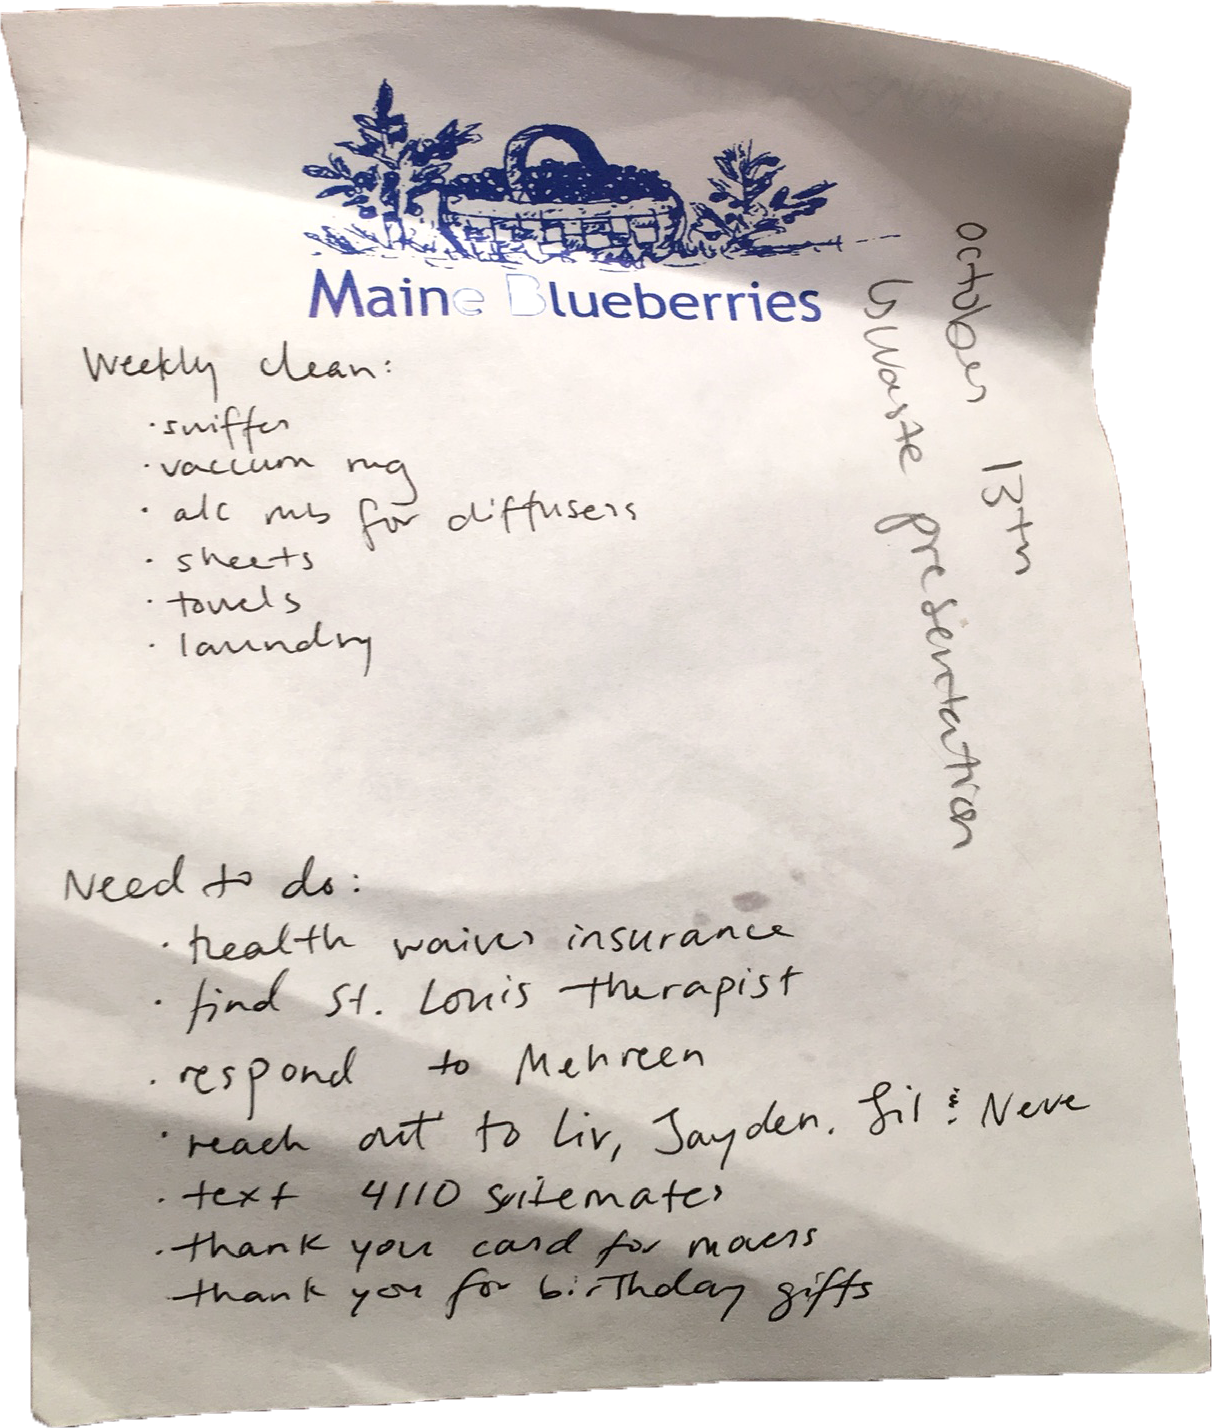 Maine Blueberries
october 13th
waste presentation
Weekly clean:
· swiffer
· vaccum rug
· alc rub for diffusers
· sheets
· towels
· laundry
Need to do:
· health waiver insurance
· find St. Louis therapist
· respond to Mehreen
· reach out to Liv, Jayden, Sil & Neve
· text 4110 suitemates
· thank you card for movers
thank you for birthday gifts